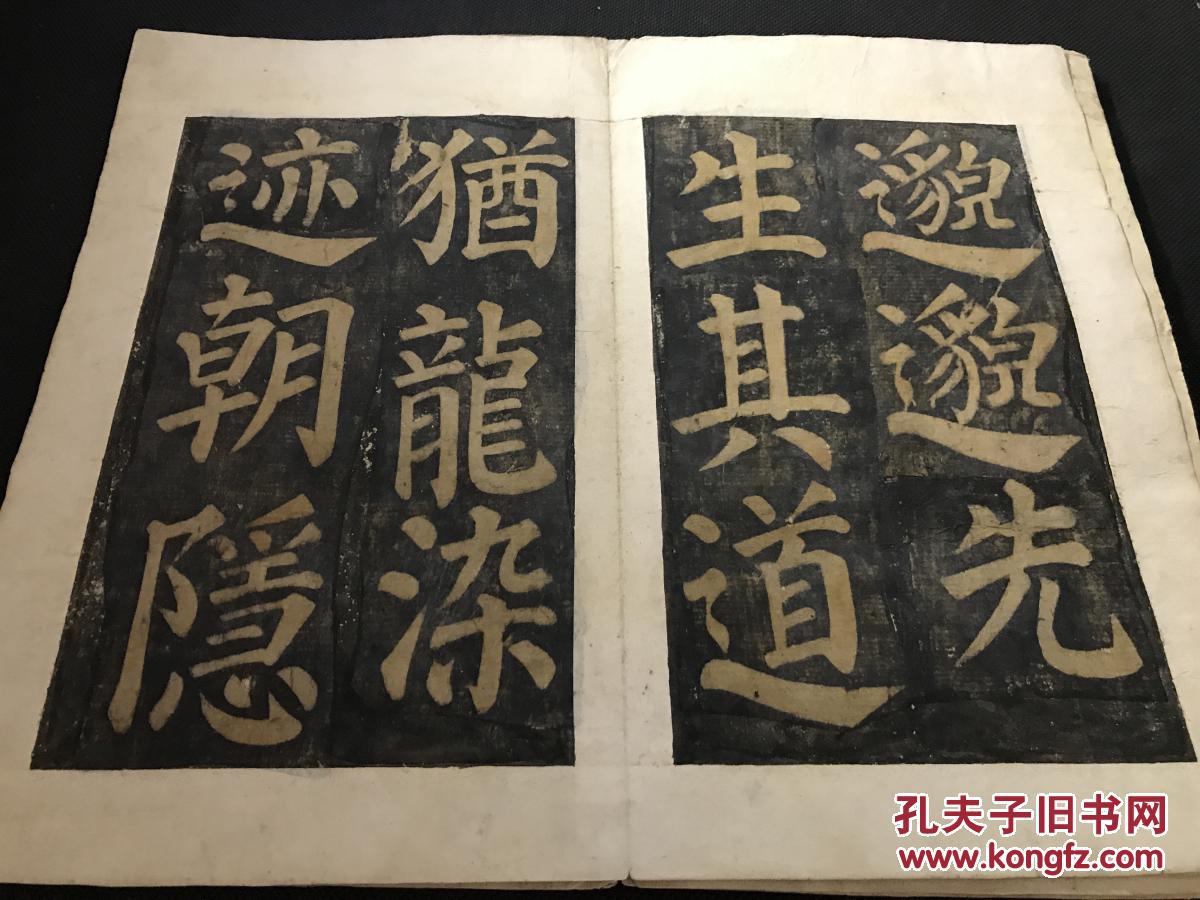 邈邈先
生其道
猶龍染
迹朝隱
孔夫子旧书网
www.kongfz.com